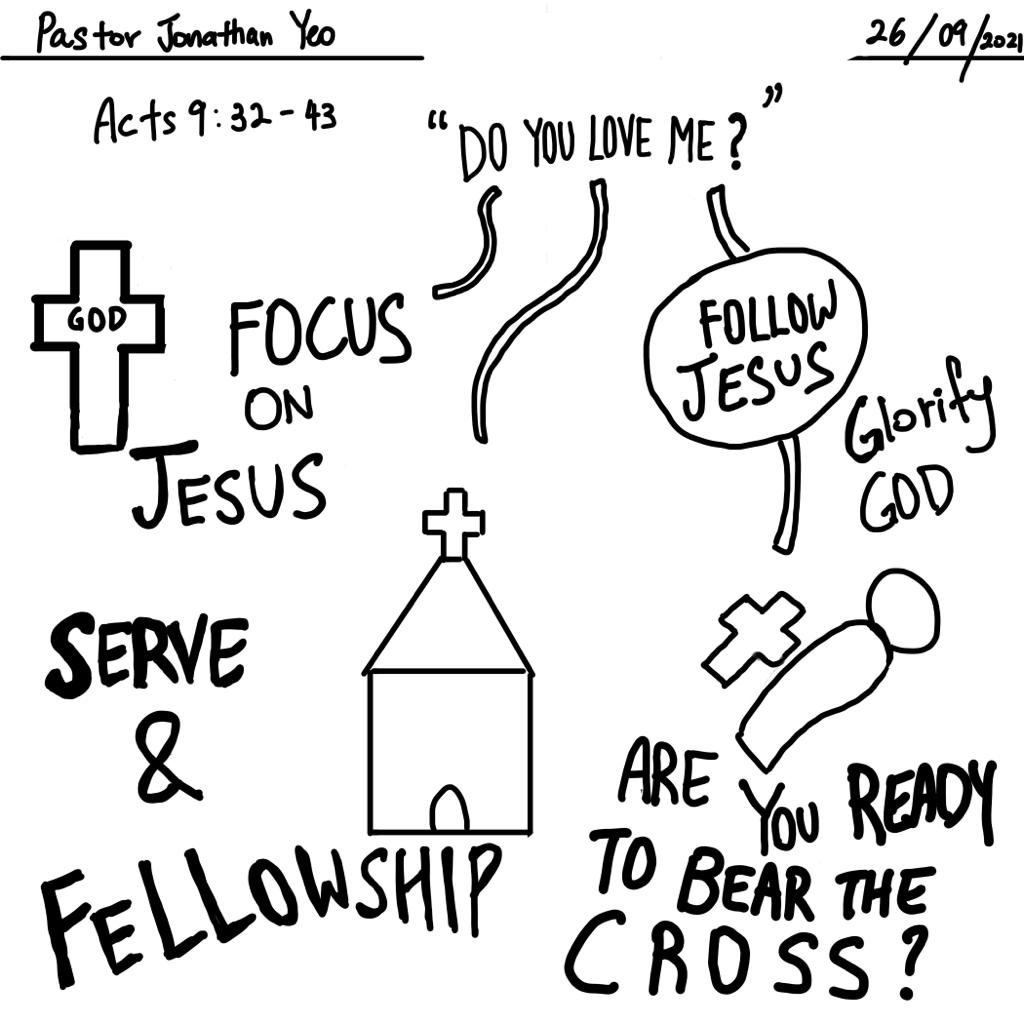 Pastor Jonathan Yeo
26/09/2021
Acts 9:32-43
"DO YOU LOVE ME?"
GOD
FOCUS
ON
JESUS
FOLLOW
JESUS
Glorify
GOD
SERVE
&
FELLOWSHIP
ARE YOU READY
TO BEAR THE
CROSS?